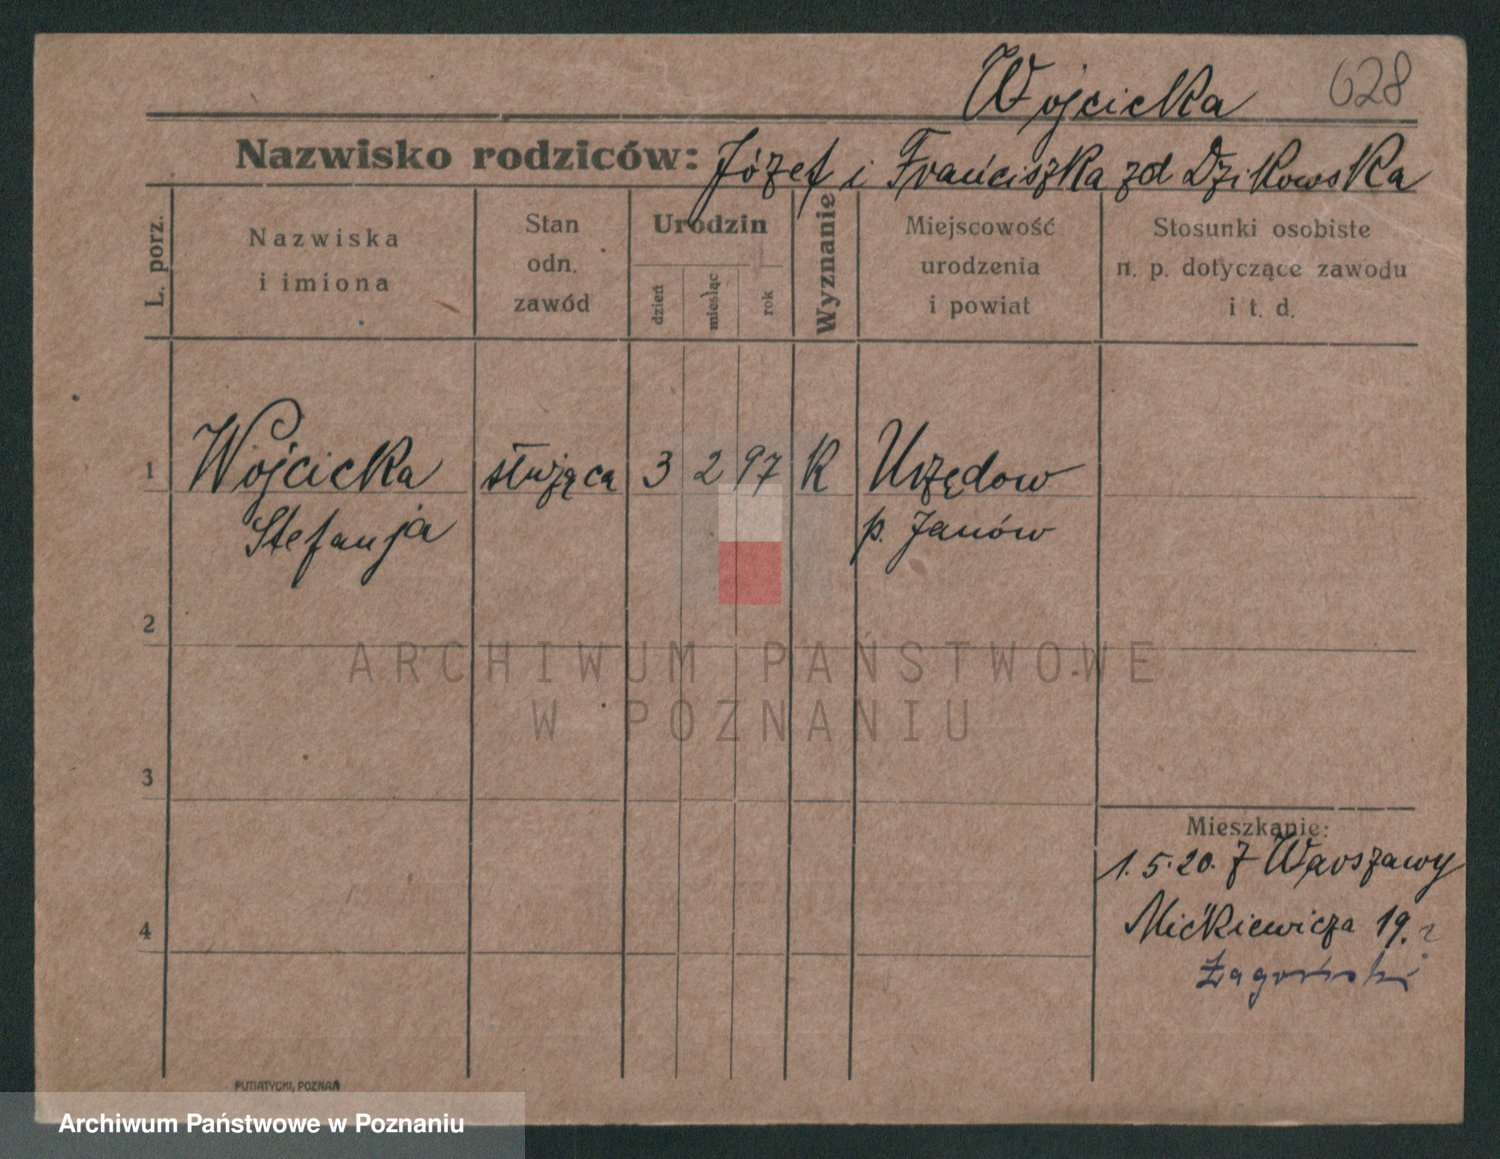 Wojcicka 628
Nazwisko rodziców: Józef i Franciszka zd Dzikowska
L. porz.
Nazwiska
i imiona
Stan
odn.
zawód
Urodzin
dzień
miesiąc
rok
Wyznanie
Miejscowość
urodzenia
i powiat
Stosunki osobiste
n. p. dotyczące zawodu
i t. d.
1 Wojcicka służąca 3 2 97 K Urzędow
Stefanja p. Janów
2
ARCHIWUM PAŃSTWOWE
W POZNANIU
3
Mieszkanie:
1.5.20. z Warszawy
4 Mickiewicza 19.
Żagórski
PUTIATYCKI, POZNAŃ
Archiwum Państwowe w Poznaniu